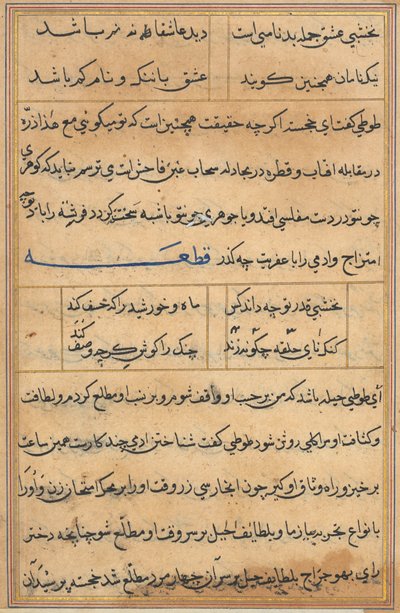 نخشبی عشق جمله بدنامیی است
دید عاشقان نه نر باشد
نیکنامان همچنین گویند
عشق با ننگ و نام کم باشد
طوطی گفت ای خجسته اگرچه حقیقت همچنین است که تو میکوئی مع هذا ذرّه
در مقابله افتاب و قطره در مجادله سحاب غبن فاحش است می ترسم نباید که کوهری
چو تو در دست مفلسی افتد و یا جوهری چو تو باشبه سخت کردد فرشته را با دیو چه
امتزاج وادمی را با عفریت چه کذر قطعه
نخشبی قدر تو چه داند کس
ماه و خورشید را که خسف کند
کنک نای حلقه چگونه زند
چنک را کوش کر چه وصف کند
ای طوطی حیله باشد که من بر حسب او واقف شوم و بر نسب او مطلع کردم و لطافت
و کثافت او مرا کلی روشن شود طوطی کفت شناختن ادمی چند کارست همین ساعت
برخیز و راه وثاق او کیر چون انجا رسی زر وقت او را بر محک امتحان زن و او را
بانواع تجربه بیازما و بلطایف الحیل بر سر وقت او مطلع شو چنانچه دختر
رای بهوجراج بلطایف حیل بر سر آن چهار مرد مطلع شد خجسته پرسید آن